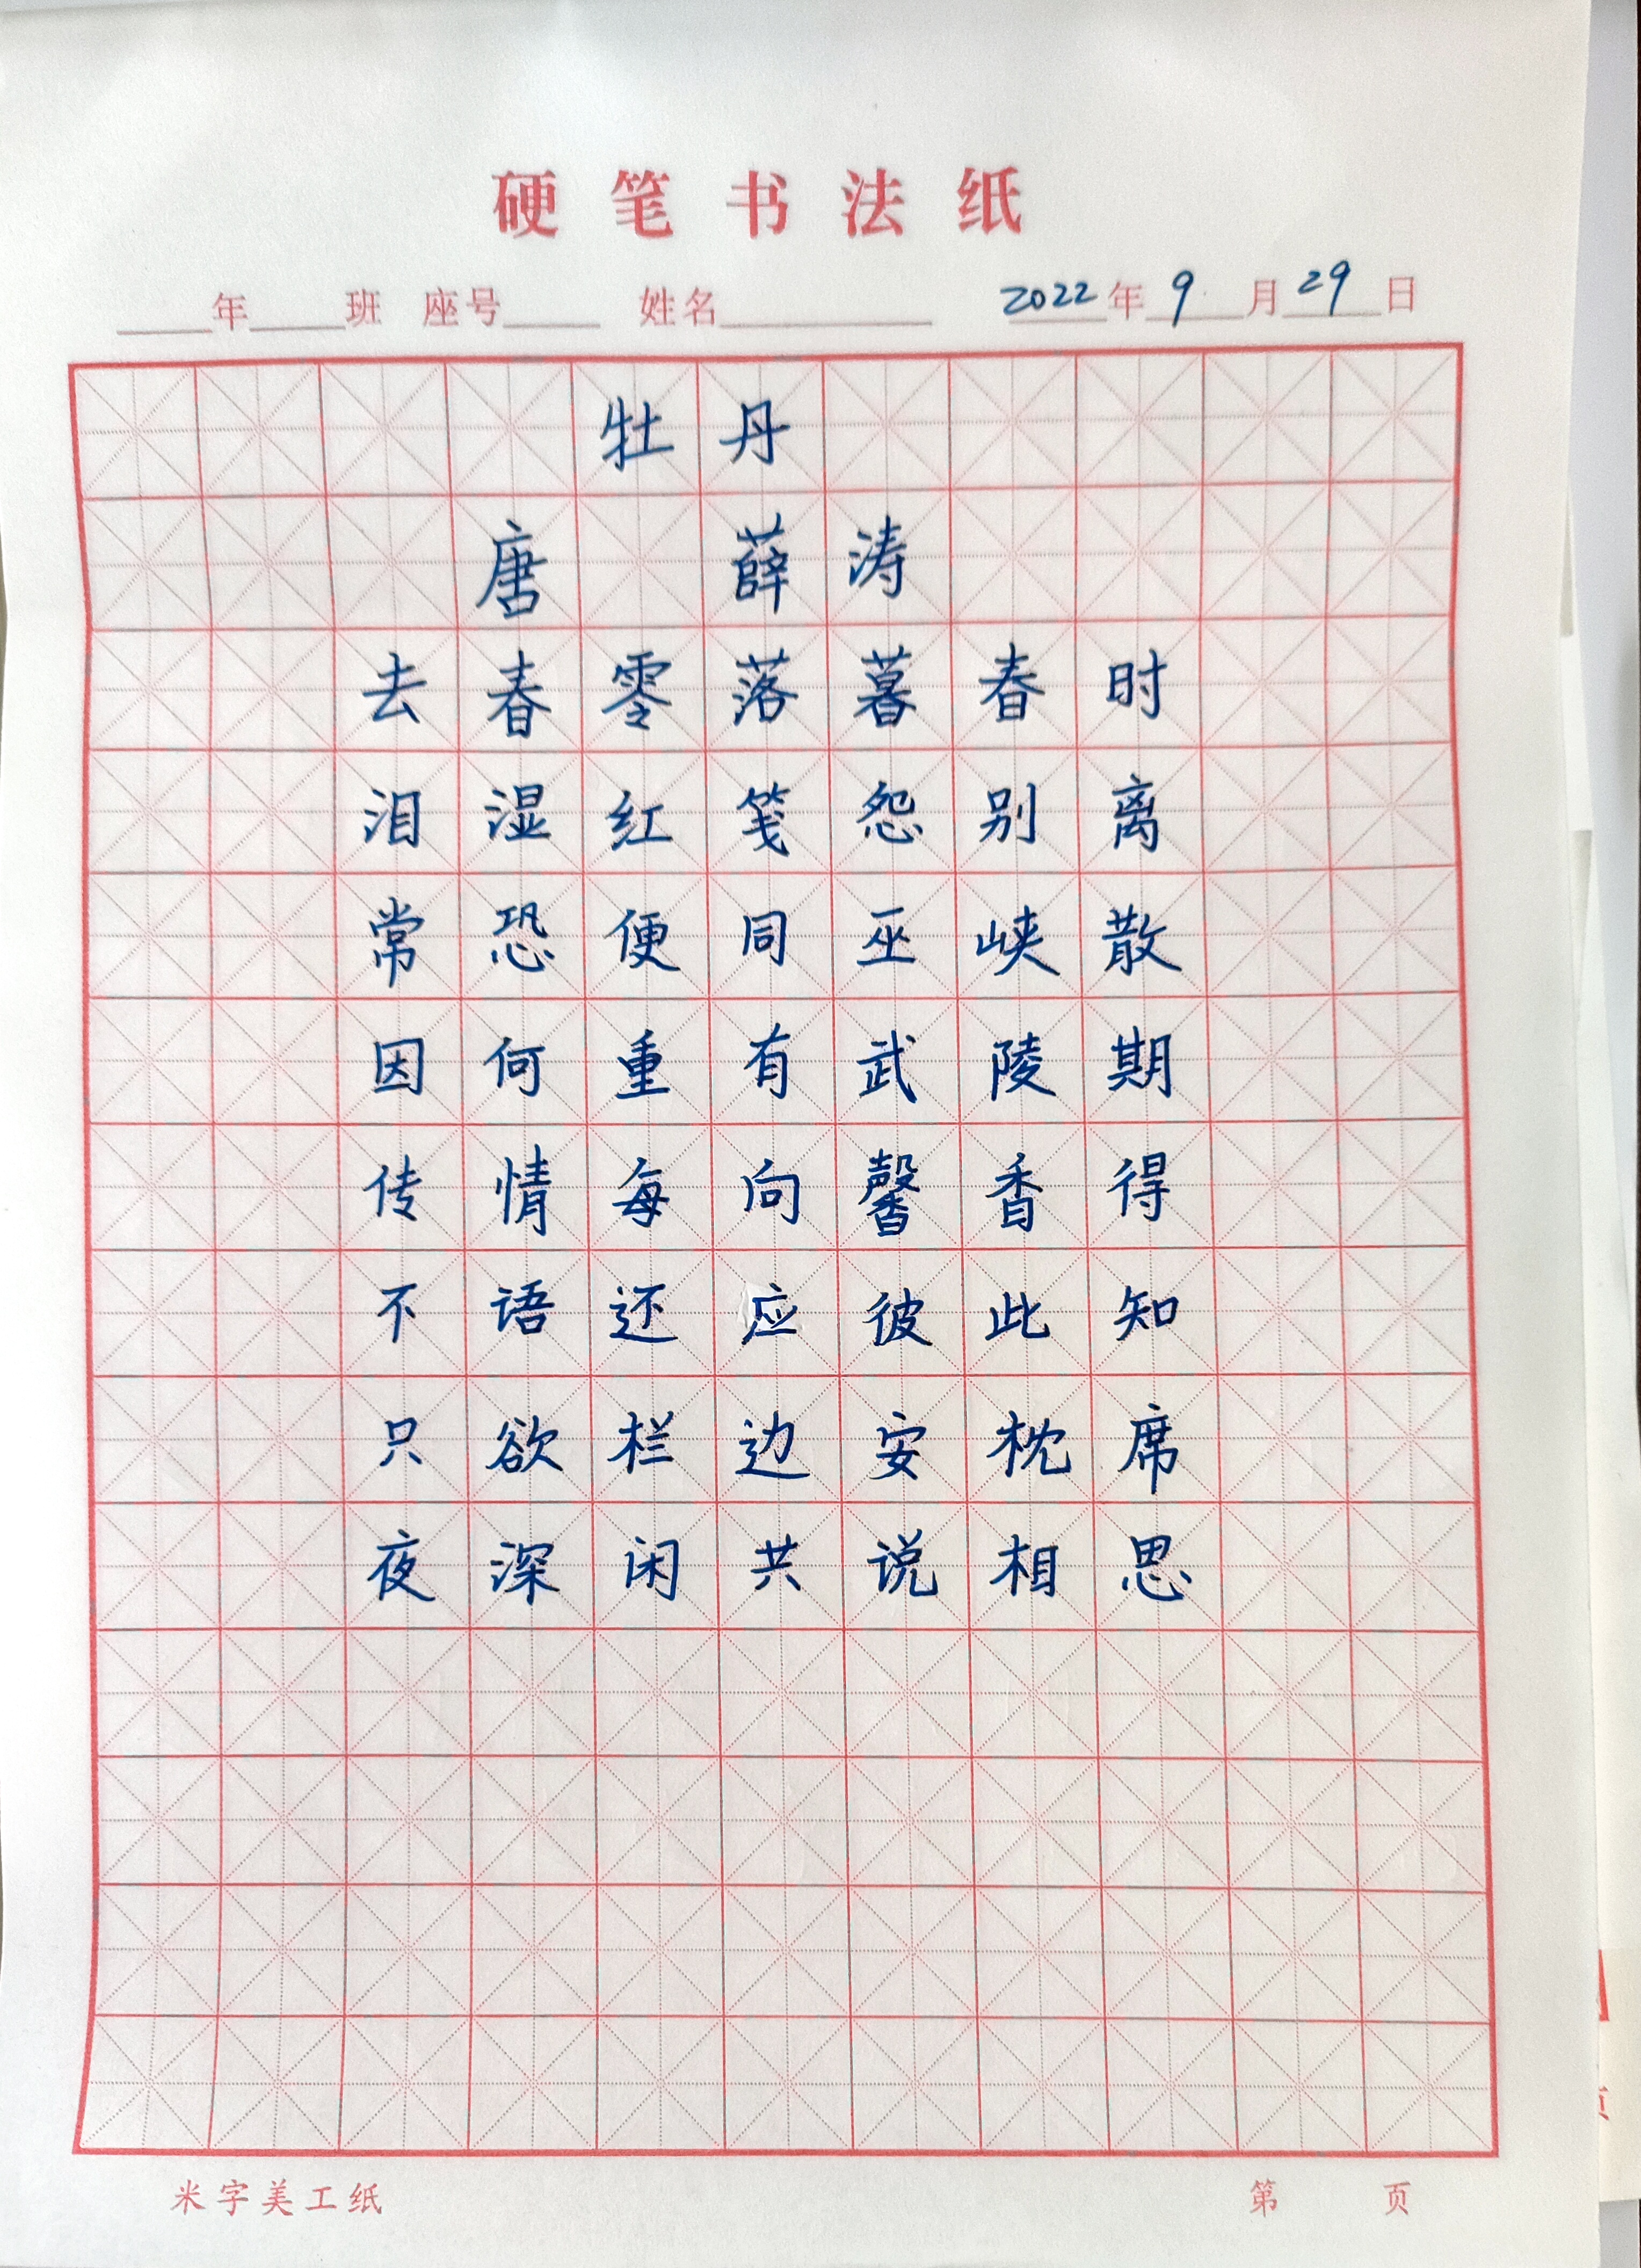 硬笔书法纸
年 班 座号 姓名 2022年9月29日
牡丹
唐 薛涛
去春零落暮春时
泪湿红笺怨别离
常恐便同巫峡散
因何重有武陵期
传情每向馨香得
不语还应彼此知
只欲栏边安枕席
夜深闲共说相思
米字美工纸 第 页